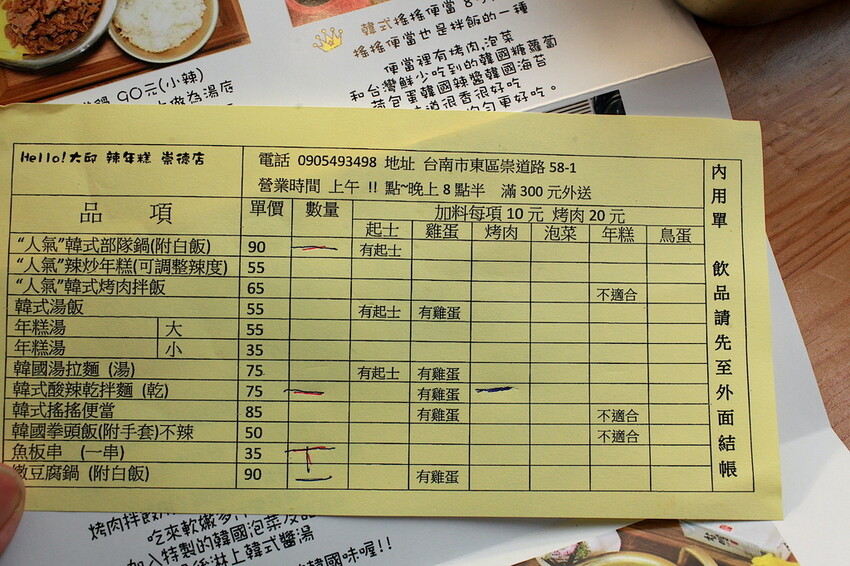 韓式搖搖便當
搖搖便當也是拌飯的一種
便當裡有烤肉,泡菜
和台灣鮮少吃到的韓國糖蘿蔔
荷包蛋韓國辣醬韓國海苔
味道很香很好吃
更好吃。
90元(小辣)
做為湯底
Hello!大邱 辣年糕 崇德店
電話 0905493498 地址 台南市東區崇道路 58-1
營業時間 上午 !! 點~晚上 8 點半 滿 300 元外送
內用單 飲品請先至外面結帳
品 項 單價 數量 加料每項 10 元 烤肉 20 元
起士 雞蛋 烤肉 泡菜 年糕 鳥蛋
“人氣”韓式部隊鍋(附白飯) 90 有起士
“人氣”辣炒年糕(可調整辣度) 55
“人氣”韓式烤肉拌飯 65 不適合
韓式湯飯 55 有起士 有雞蛋
年糕湯 大 55
年糕湯 小 35
韓國湯拉麵 (湯) 75 有起士 有雞蛋
韓式酸辣乾拌麵 (乾) 75 有雞蛋
韓式搖搖便當 85 有雞蛋 不適合
韓國拳頭飯(附手套)不辣 50 不適合
魚板串 (一串) 35
嫩豆腐鍋 (附白飯) 90 有雞蛋
烤肉拌飯
吃來軟嫩多
加入特製的韓國泡菜及
後淋上韓式醬湯
韓國味喔!!